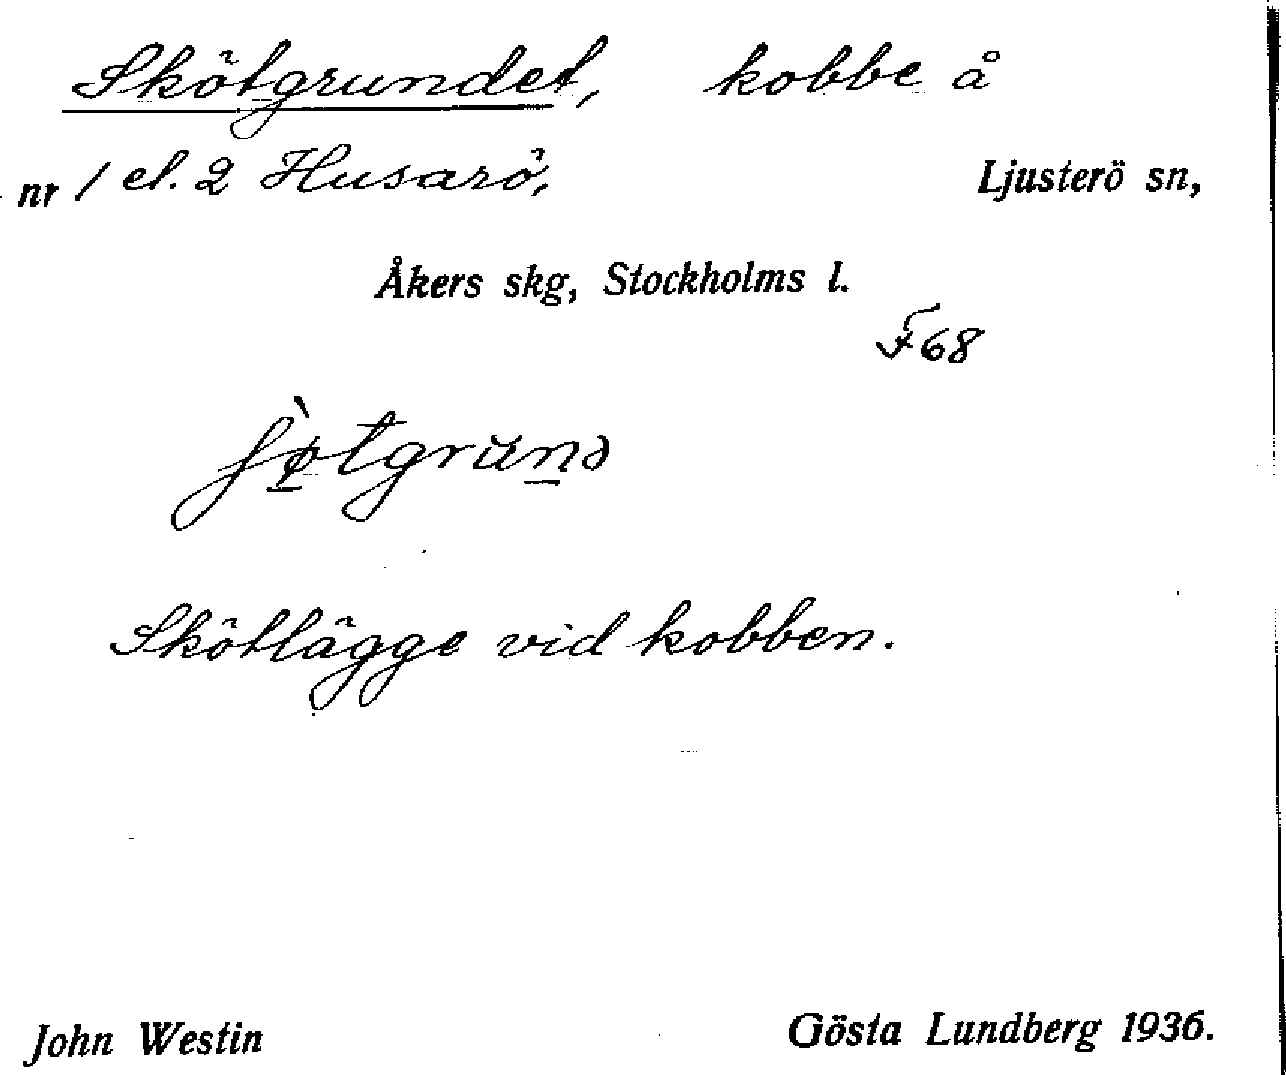 Skötgrundet, kobbe å
nr 1 el. 2 Husarö, Ljusterö sn,
Åkers skg, Stockholms l.
F 68
Skötlägge vid kobben.
John Westin Gösta Lundberg 1936.